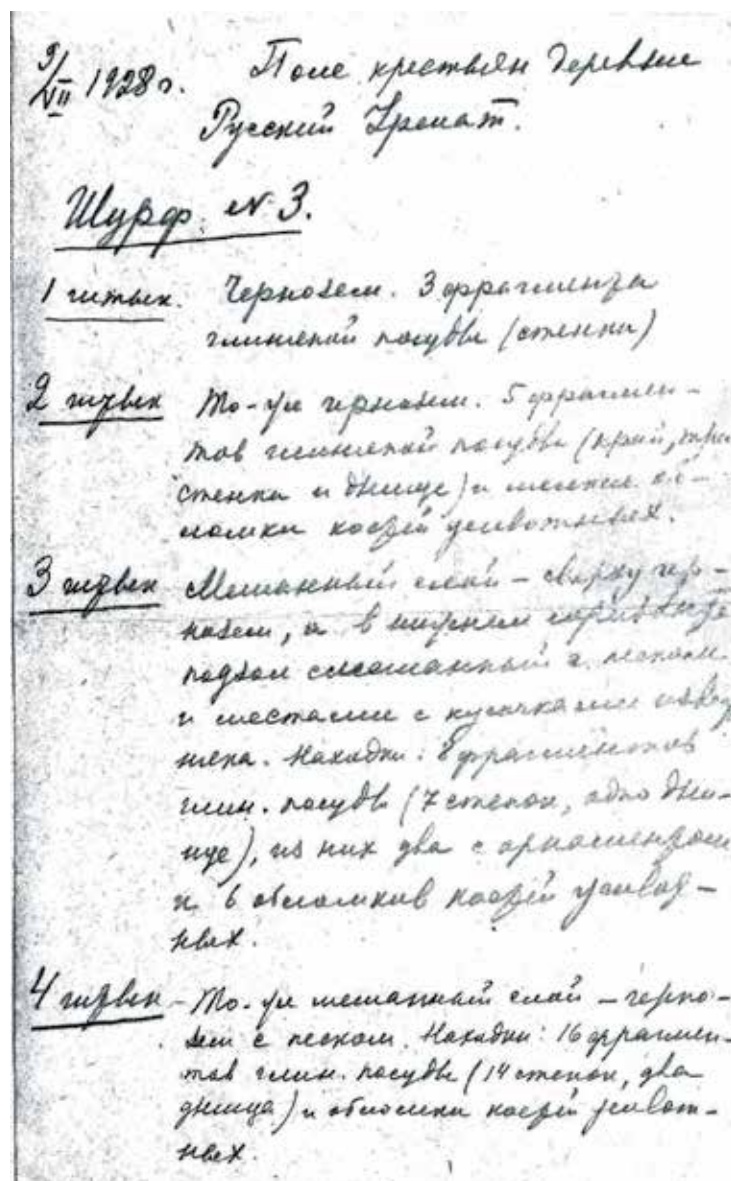 9/VII 1928 г. Поле крестьян деревни
Русский Урмат.
Шурф № 3.
1 штык. Чернозем. 3 фрагмента
глиняной посуды (стенки)
2 штык То-же чернозем. 5 фрагмен-
тов глиняной посуды (край, три
стенки и днище) и мелкие об-
ломки костей животных.
3 штык Мешанный слой – сверху чер-
нозем, а в нижнем горизонте
подзол смешанный с песком
и местами с кусочками извест
няка. Находки: 8 фрагментов
глин. посуды (7 стенок, одно дни-
ще), из них два с орнаментом
и 6 обломков костей живот-
ных.
4 штык – То-же мешанный слой – черно-
зем с песком. Находки: 16 фрагмен-
тов глин. посуды (14 стенок, два
днища) и обломки костей живот-
ных.